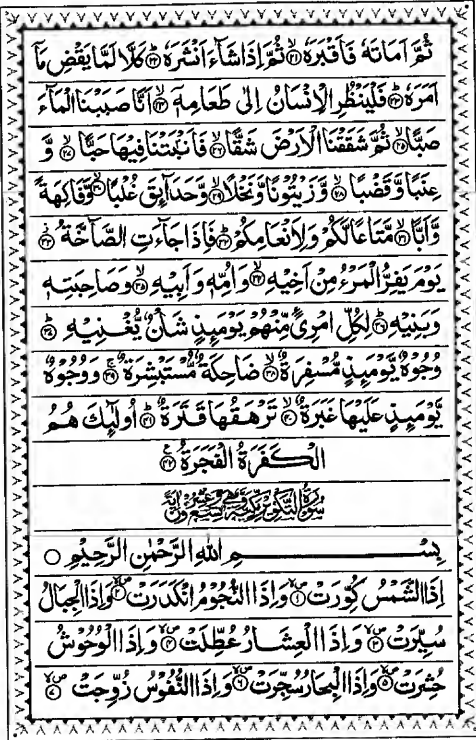 ثُمَّ اَمَاتَهٗ فَاَقْبَرَهٗ ﴿۲۱﴾ ثُمَّ اِذَا شَآءَ اَنْشَرَهٗ ﴿۲۲﴾ كَلَّا لَمَّا يَقْضِ مَآ
اَمَرَهٗ ﴿۲۳﴾ فَلْيَنْظُرِ الْاِنْسَانُ اِلٰى طَعَامِهٖٓ ﴿۲۴﴾ اَنَّا صَبَبْنَا الْمَآءَ
صَبًّا ﴿۲۵﴾ ثُمَّ شَقَقْنَا الْاَرْضَ شَقًّا ﴿۲۶﴾ فَاَنْۢبَتْنَا فِيْهَا حَبًّا ﴿۲۷﴾ وَّ
عِنَبًا وَّقَضْبًا ﴿۲۸﴾ وَّزَيْتُوْنًا وَّنَخْلًا ﴿۲۹﴾ وَّحَدَآئِقَ غُلْبًا ﴿۳۰﴾ وَّفَاكِهَةً
وَّاَبًّا ﴿۳۱﴾ مَّتَاعًا لَّكُمْ وَلِاَنْعَامِكُمْ ﴿۳۲﴾ فَاِذَا جَآءَتِ الصَّآخَّةُ ﴿۳۳﴾
يَوْمَ يَفِرُّ الْمَرْءُ مِنْ اَخِيْهِ ﴿۳۴﴾ وَاُمِّهٖ وَاَبِيْهِ ﴿۳۵﴾ وَصَاحِبَتِهٖ
وَبَنِيْهِ ﴿۳۶﴾ لِكُلِّ امْرِئٍ مِّنْهُمْ يَوْمَئِذٍ شَاْنٌ يُّغْنِيْهِ ﴿۳۷﴾
وُجُوْهٌ يَّوْمَئِذٍ مُّسْفِرَةٌ ﴿۳۸﴾ ضَاحِكَةٌ مُّسْتَبْشِرَةٌ ﴿۳۹﴾ وَوُجُوْهٌ
يَّوْمَئِذٍ عَلَيْهَا غَبَرَةٌ ﴿۴۰﴾ تَرْهَقُهَا قَتَرَةٌ ﴿۴۱﴾ اُولٰٓئِكَ هُمُ
الْكَفَرَةُ الْفَجَرَةُ ﴿۴۲﴾
سُوْرَةُ التَّكْوِيْرِ مَكِّيَّةٌ وَّهِيَ تِسْعٌ وَّعِشْرُوْنَ اٰيَةً
بِسْمِ اللّٰهِ الرَّحْمٰنِ الرَّحِيْمِ ○
اِذَا الشَّمْسُ كُوِّرَتْ ﴿۱﴾ وَاِذَا النُّجُوْمُ انْكَدَرَتْ ﴿۲﴾ وَاِذَا الْجِبَالُ
سُيِّرَتْ ﴿۳﴾ وَاِذَا الْعِشَارُ عُطِّلَتْ ﴿۴﴾ وَاِذَا الْوُحُوْشُ
حُشِرَتْ ﴿۵﴾ وَاِذَا الْبِحَارُ سُجِّرَتْ ﴿۶﴾ وَاِذَا النُّفُوْسُ زُوِّجَتْ ﴿۷﴾